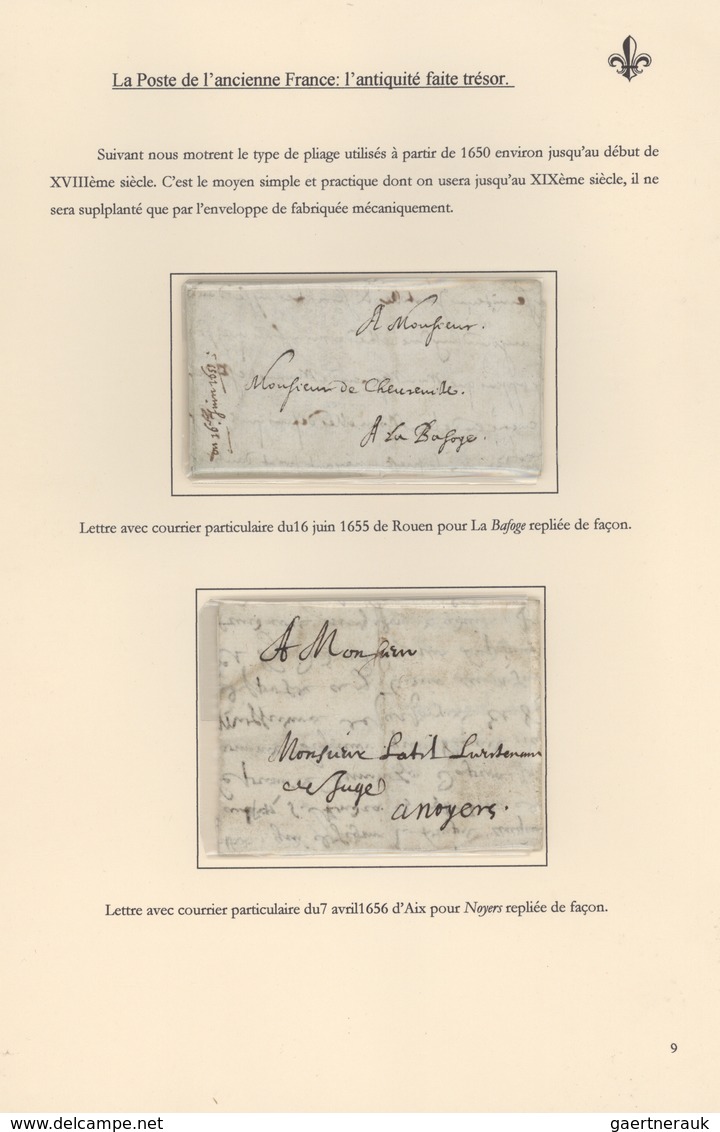 La Poste de l'ancienne France: l'antiquité faite trésor.
Suivant nous motrent le type de pliage utilisés à partir de 1650 environ jusqu'au début de
XVIIIème siècle. C'est le moyen simple et practique dont on usera jusqu'au XIXème siècle, il ne
sera suplplanté que par l'enveloppe de fabriquée mécaniquement.
A Monsieur.
Monsieur de
A La Bafoge.
juin 1655
Lettre avec courrier particulaire du16 juin 1655 de Rouen pour La Bafoge repliée de façon.
A Monsieur
Monsieur Labil
de Juge
anoyers.
Lettre avec courrier particulaire du7 avril1656 d'Aix pour Noyers repliée de façon.
9
www.delcampe.net
gaertnerauk